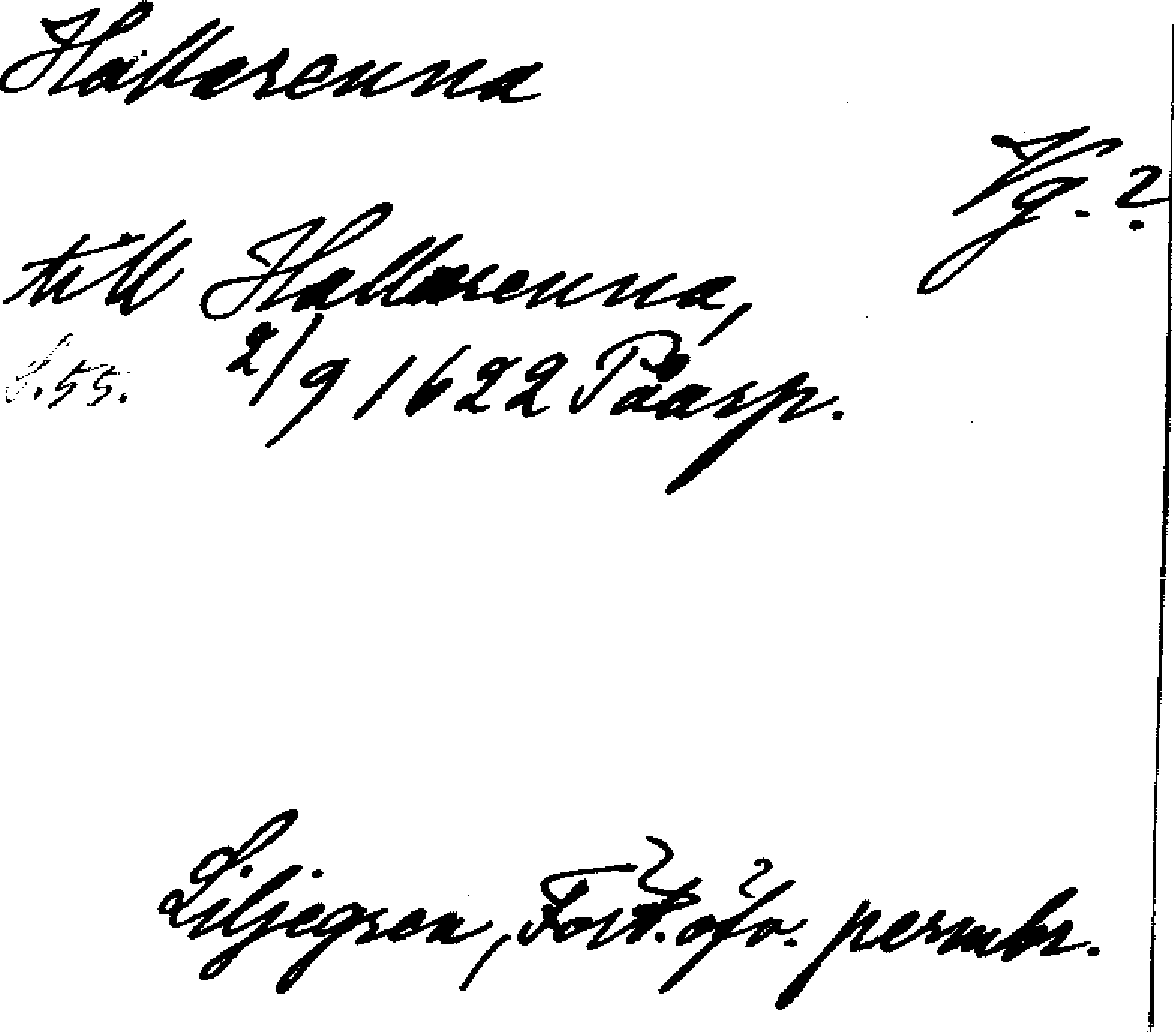 Hallarenna
Vg. ?
till Hallarenna,
S. 55. 2/9 1622 Påarp.
Liljegren, Fört. öfv. permbr.